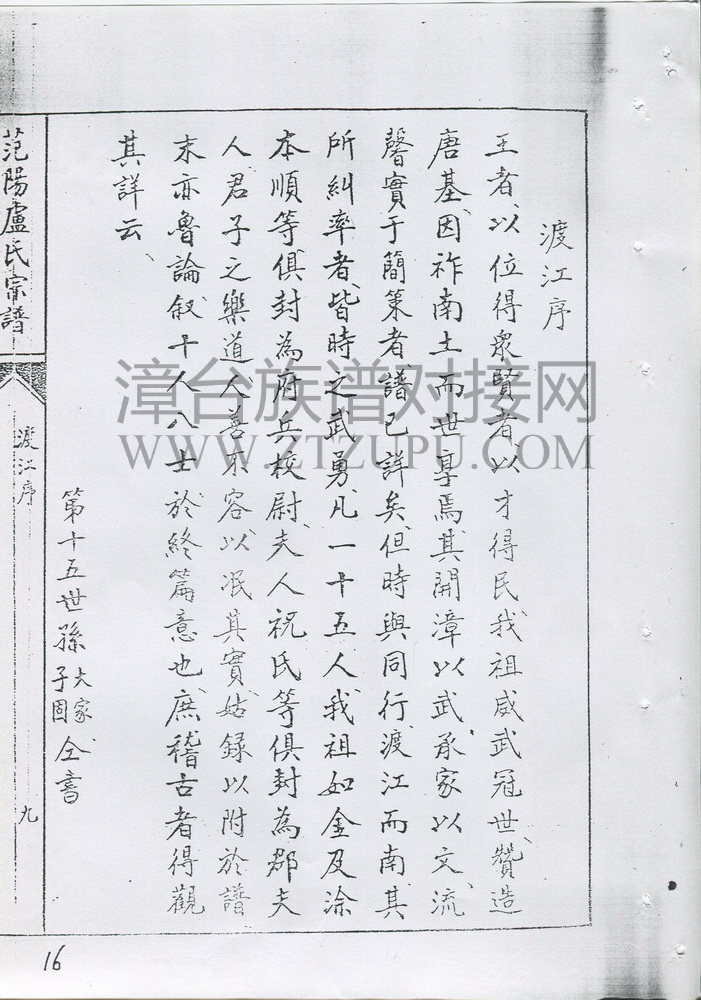 渡江序
王者以位得衆賢者以才得民我祖威武冠世贊造
唐基因祚南土而世享焉其開漳以武承家以文流
馨實于簡策者譜已詳矣但時與同行渡江而南其
所糾率者皆時之武勇凡一十五人我祖如金及涂
本順等俱封為府兵校尉夫人祝氏等俱封為郡夫
人君子之樂道人善不容以泯其實姑錄以附於譜
末亦魯論叙十人八士於終篇意也庶稽古者得觀
其詳云
第十五世孫 大家 子固 仝書
范陽盧氏宗譜
渡江序
九
16
漳台族谱对接网
WWW.ZTZUPU.COM